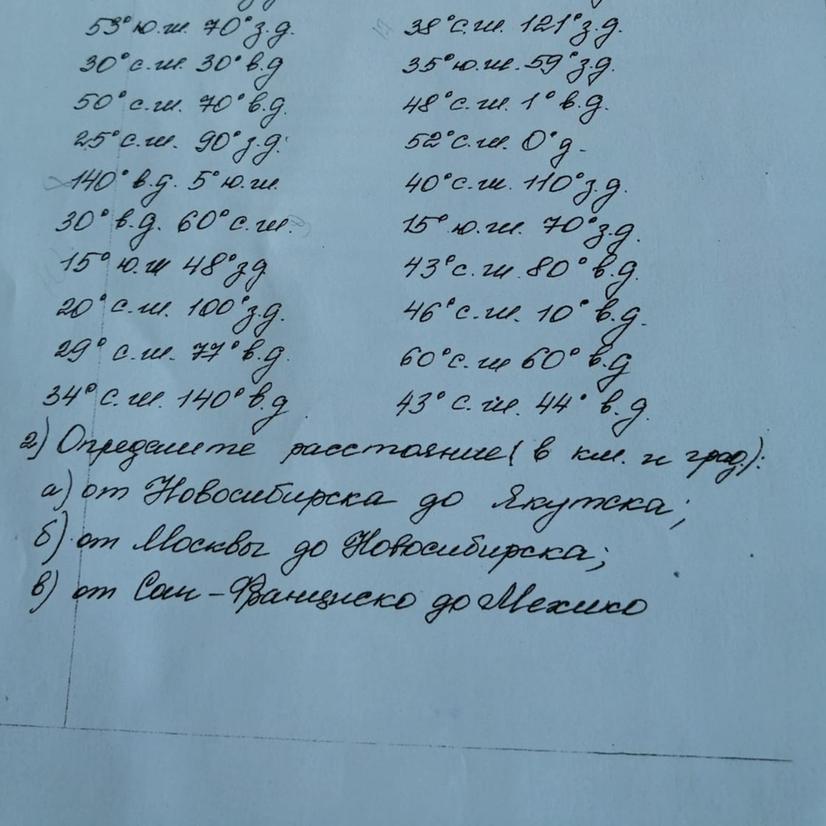 53° ю.ш. 70° з.д.
30° с.ш. 30° в.д
50° с.ш. 70° в.д.
25° с.ш. 90° з.д.
140° в.д. 5° ю.ш.
30° в.д. 60° с.ш.
15° ю.ш 48° з д
20° с.ш. 100° з.д.
29° с.ш. 77° в.д.
34° с.ш. 140° в.д
38° с.ш. 121° з.д.
35° ю.ш. 59° з.д.
48° с.ш. 1° в.д.
52° с.ш. 0° д.
40° с.ш. 110° з.д.
15° ю.ш. 70° з.д.
43° с.ш. 80° в.д.
46° с.ш. 10° в.д.
60° с.ш 60° в.д
43° с.ш. 44° в.д.
2) Определите расстояние (в км. и град.):
а) от Новосибирска до Якутска;
б) от Москвы до Новосибирска;
в) от Сан-Франциско до Мехико